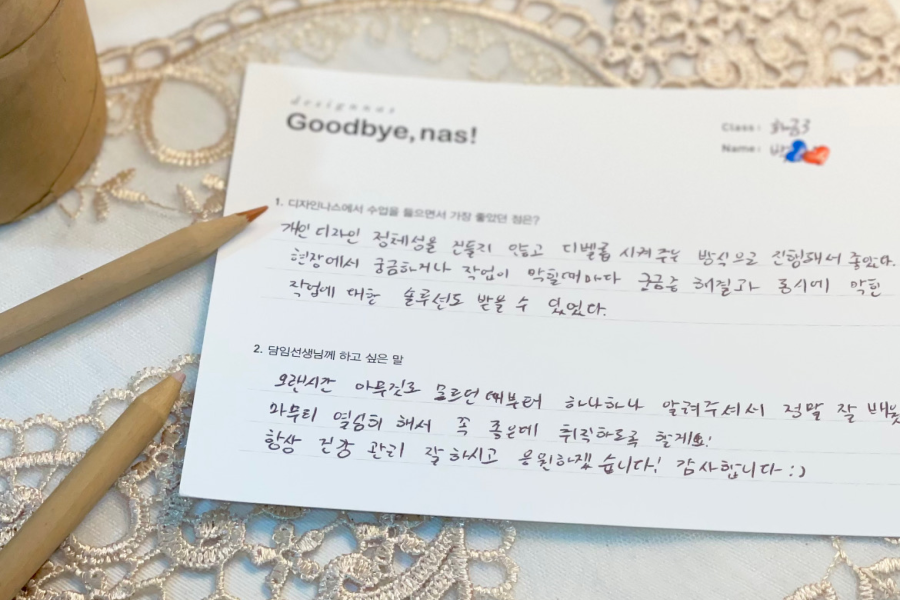 designnas
Goodbye, nas!
Class: 화금3
Name: 박
1. 디자인나스에서 수업을 들으면서 가장 좋았던 점은?
개인 디자인 정체성을 건들지 않고 디벨롭 시켜주는 방식으로 진행돼서 좋았다.
현장에서 궁금하거나 작업이 막힐때마다 궁금증 해결과 동시에 막힌
작업에 대한 솔루션도 받을 수 있었다.
2. 담임선생님께 하고 싶은 말
오랜시간 아무것도 모르던 때부터 하나하나 알려주셔서 정말 잘 배웠
마무리 열심히 해서 꼭 좋은데 취직하도록 할게요!
항상 건강 관리 잘하시고 응원하겠습니다! 감사합니다 :)